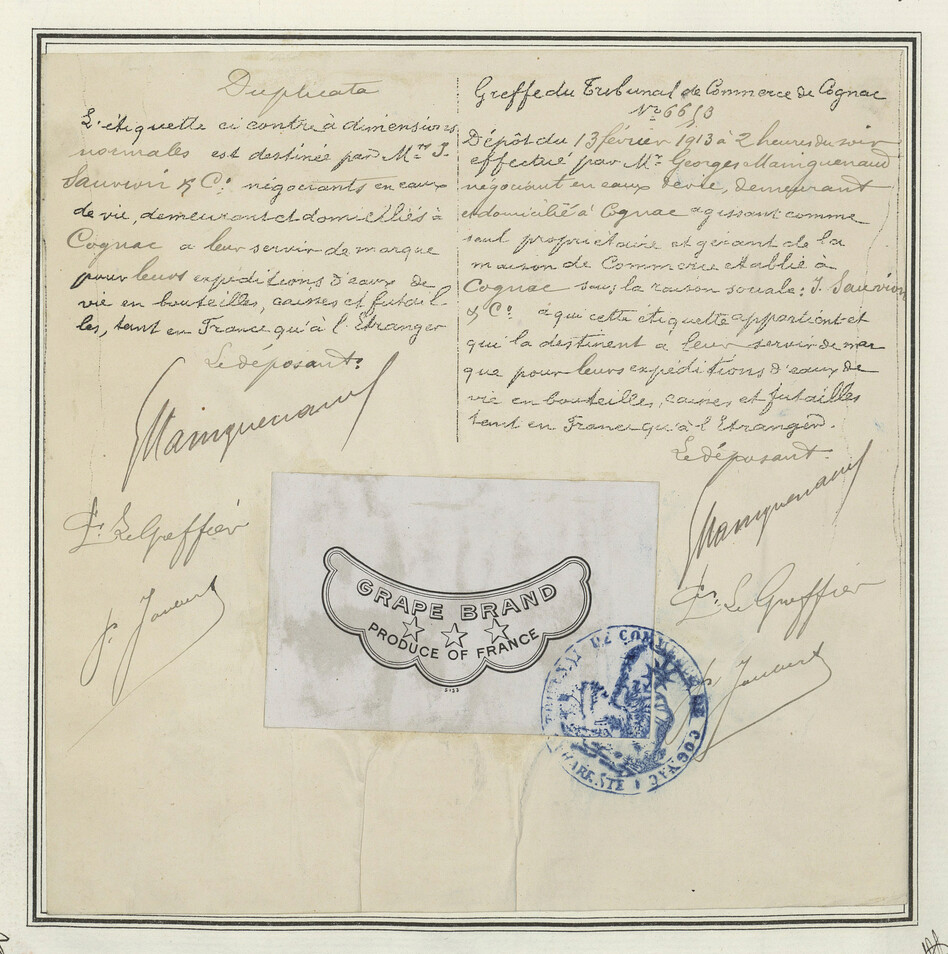 Duplicata
L'étiquette ci contre à dimensions
normales est destinée par Mrs J.
Sauvion & Co. négociants en eaux
de vie, demeurant et domiciliés à
Cognac a leur servir de marque
pour leurs expéditions d'eaux de
vie en bouteilles, caisses et futail
les, tant en France qu'à l'Etranger
Le déposant:
GMainguenaud
Pr. Le Greffier
Greffe du Tribunal de Commerce de Cognac
No 6653
Dépôt du 13 février 1913 à 2 heures du soir
effectué par Mr Georges Mainguenaud
négociant en eaux de vie, demeurant
et domicilié à Cognac agissant comme
seul propriétaire et gérant de la
maison de Commerce établie à
Cognac sous la raison sociale: J. Sauvion
& Co. à qui cette étiquette appartient et
qui la destinent a leur servir de mar
que pour leurs expéditions d'eaux de
vie en bouteilles, caisses et futailles
tant en France qu'à l'Etranger.
Le déposant.
GMainguenaud
Pr. Le Greffier
GRAPE BRAND
PRODUCE OF FRANCE
TRIBUNAL DE COMMERCE DE COGNAC
CHARENTE